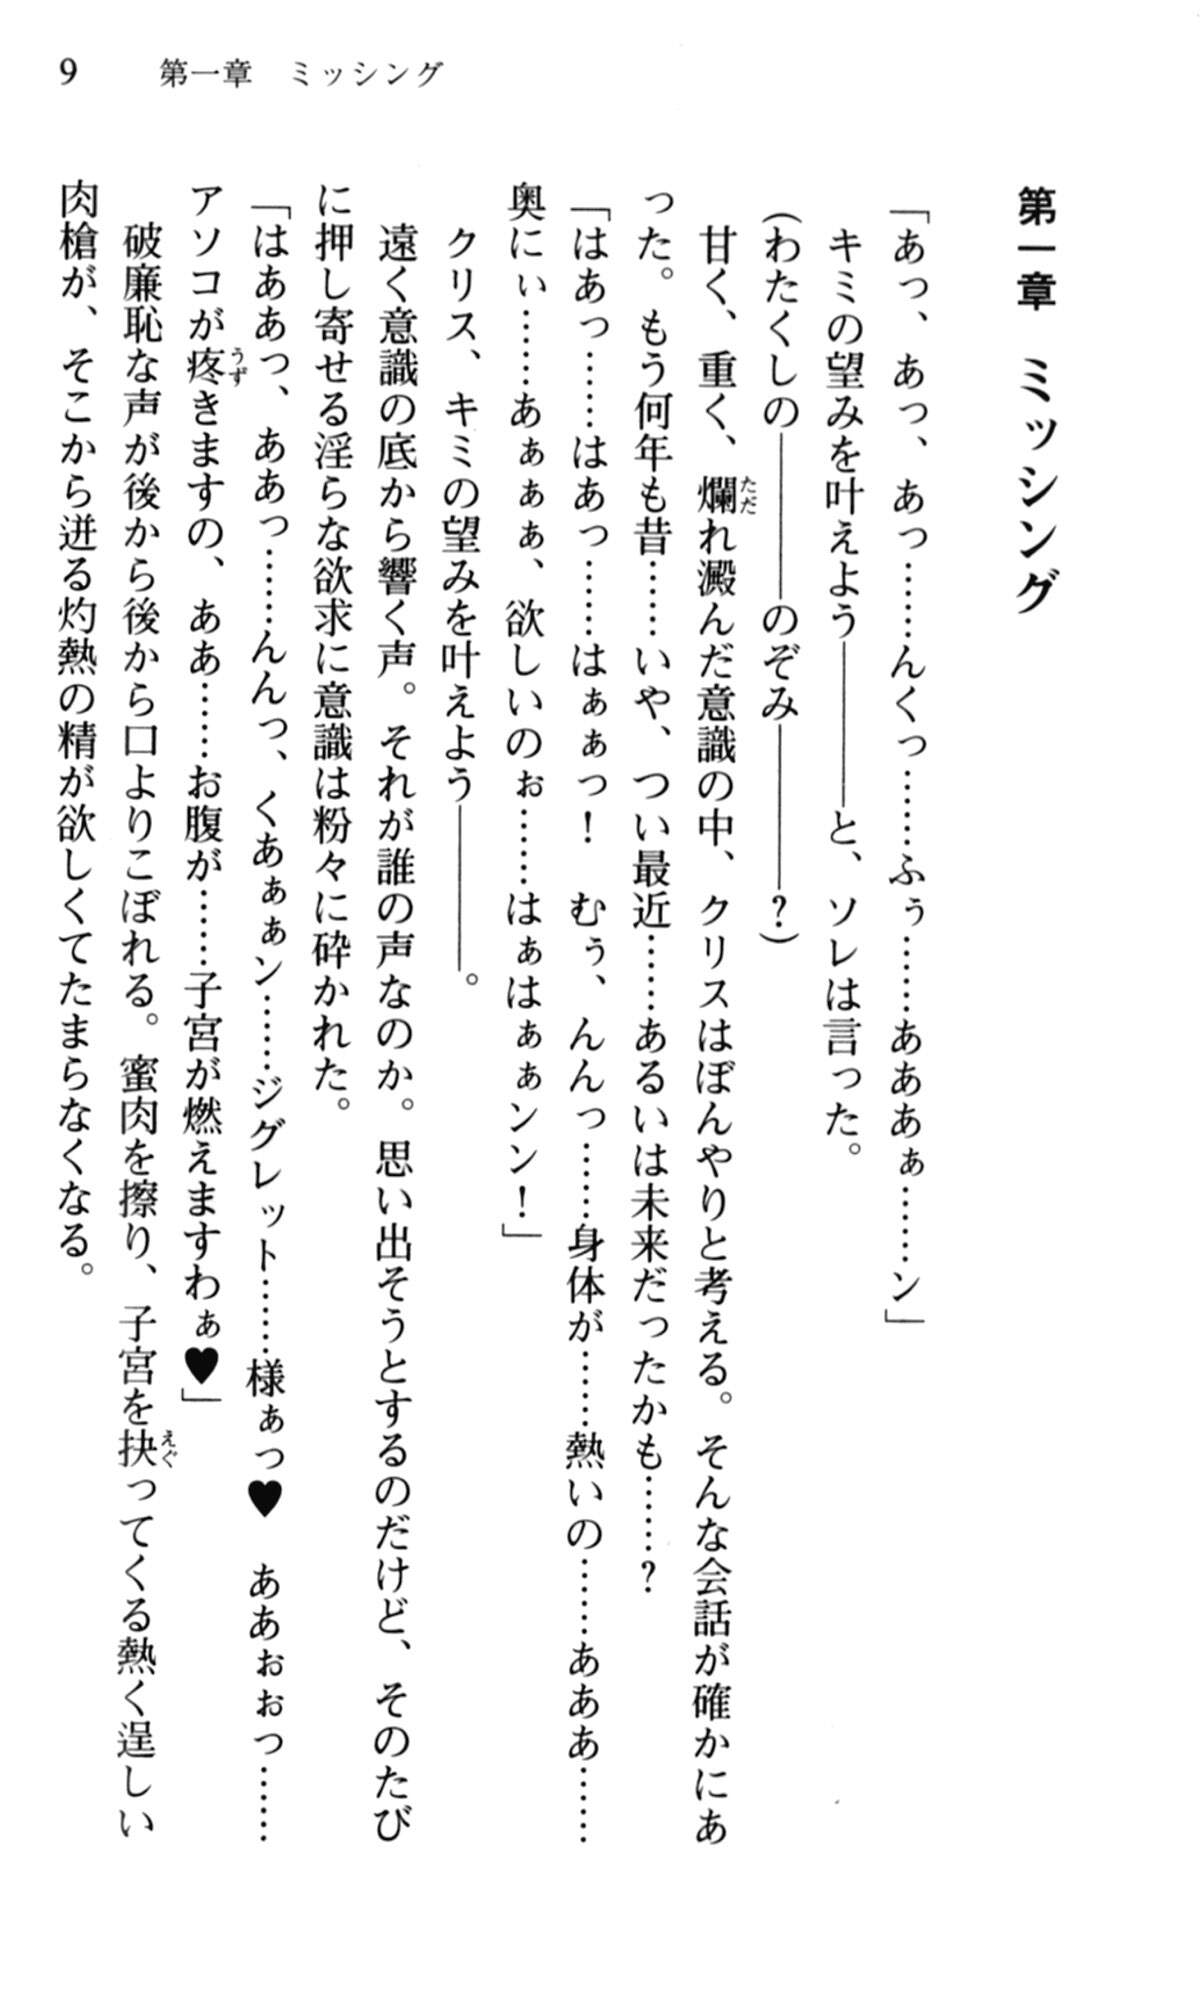 9　第一章　ミッシング
第一章　ミッシング
「あっ、あっ、あっ……んくっ……ふぅ……あああぁ……ン」
キミの望みを叶えよう――――と、ソレは言った。
(わたくしの――――のぞみ――――？)
甘く、重く、爛れ澱んだ意識の中、クリスはぼんやりと考える。そんな会話が確かにあ
った。もう何年も昔……いや、つい最近……あるいは未来だったかも……？
「はあっ……はあっ……はぁぁっ！　むぅ、んんっ……身体が……熱いの……あああ……
奥にぃ……あぁぁぁ、欲しいのぉ……はぁはぁぁンン！」
クリス、キミの望みを叶えよう――――。
遠く意識の底から響く声。それが誰の声なのか。思い出そうとするのだけど、そのたび
に押し寄せる淫らな欲求に意識は粉々に砕かれた。
「はああっ、ああっ……んんっ、くあぁぁン……ジグレット……様ぁっ♥　ああぉぉっ……
アソコが疼きますの、ああ……お腹が……子宮が燃えますわぁ♥」
破廉恥な声が後から後から口よりこぼれる。蜜肉を擦り、子宮を抉ってくる熱く逞しい
肉槍が、そこから迸る灼熱の精が欲しくてたまらなくなる。